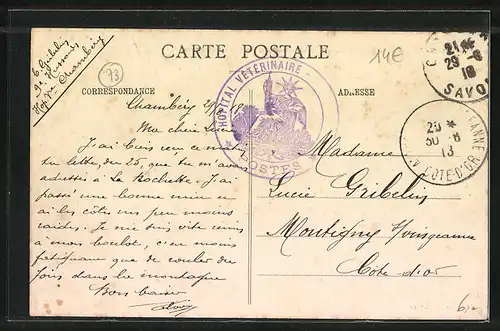 C. Gribelin
9e Hussards
Hop. Vre Chambéry
CARTE POSTALE
14€
73
CORRESPONDANCE
ADRESSE
HOPITAL VETERINAIRE
POSTES
21
29-6
18
SAVOI
25 *
30-6
13
COTE-D'OR
Chambéry
Ma chère Lucie
J'ai bien reçu ce matin
ta lettre du 25, que tu m'avais
adressée à la Rochette. J'ai
passé une bonne nuit et
ai les côtes un peu moins
raides. Je me suis vite remis
à mon boulot, c'est moins
fatiguant que de couler du
foin dans la montagne
Bons baisers
Madame
Lucie Gribelin
Montigny
Côte-d'or
6,-